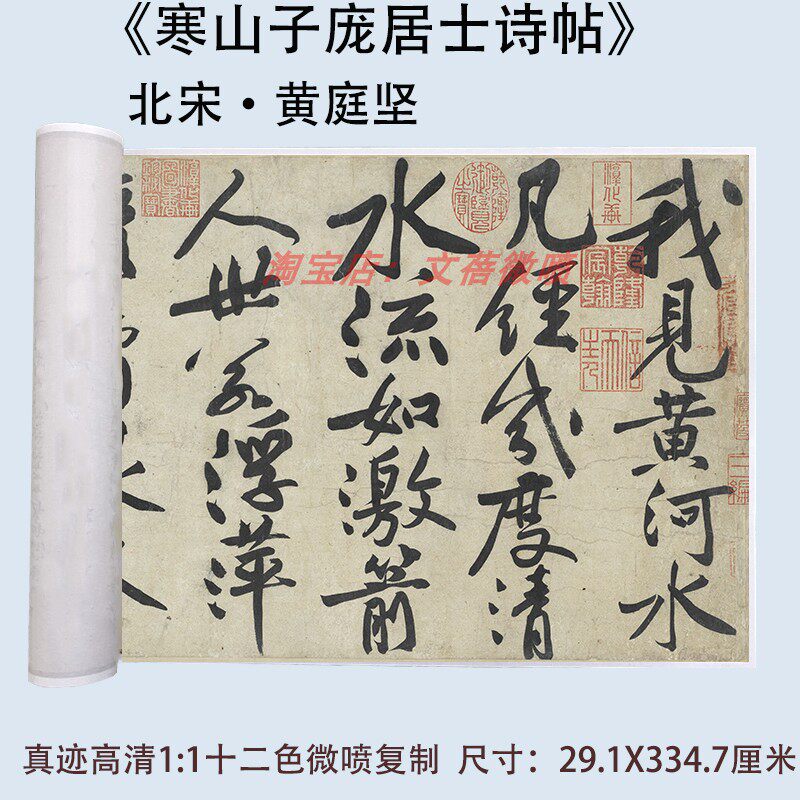 《寒山子庞居士诗帖》
北宋·黄庭坚
我見黄河水
凡经幾度清
水流如激箭
人世若浮萍
淘宝店：文蓓微喷
真迹高清1:1十二色微喷复制 尺寸：29.1X334.7厘米